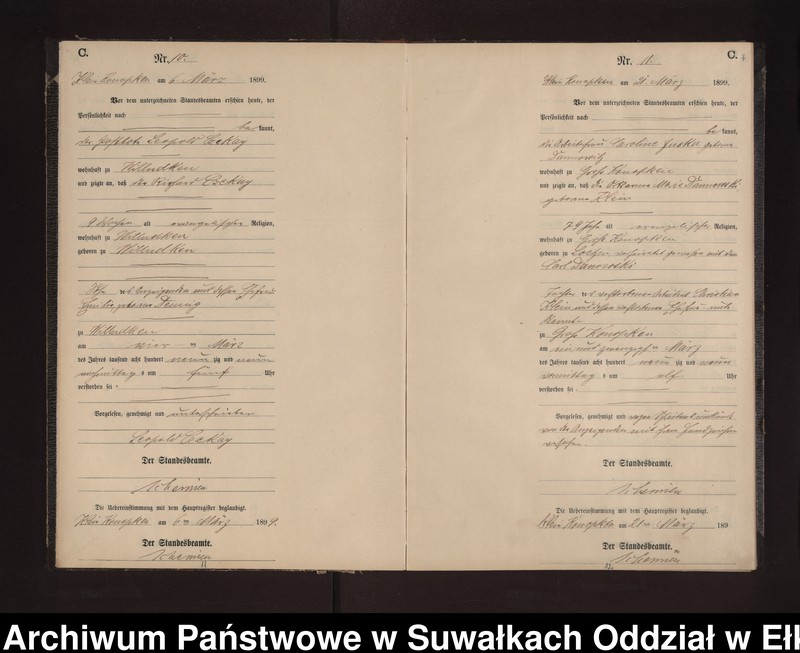 C.
Nr. 10.
Klein Konopken am 6. März 1899.
Vor dem unterzeichneten Standesbeamten erschien heute, der
Persönlichkeit nach
be kannt,
der Leopold
wohnhaft zu Willudken
und zeigte an, daß der Richard
9 Wochen alt evangelischer Religion,
wohnhaft zu Willudken
geboren zu Willudken
Sohn des Anzeigenden und dessen Ehefrau
geborene
zu Willudken
am vier ten März
des Jahres tausend acht hundert neun zig und neun
nachmittags um fünf Uhr
verstorben sei.
Vorgelesen, genehmigt und unterschrieben
Leopold
Der Standesbeamte.
Die Uebereinstimmung mit dem Hauptregister beglaubigt.
Klein Konopken am 6ten März 1899.
Der Standesbeamte.
11
C.
Nr. 11.
Klein Konopken am 21. März 1899.
Vor dem unterzeichneten Standesbeamten erschien heute, der
Persönlichkeit nach
be kannt,
die Arbeiterfrau Caroline geborene
wohnhaft zu Groß Konopken
und zeigte an, daß die Marie
geborene Klein
79 Jahre alt evangelischer Religion,
wohnhaft zu Groß Konopken
geboren zu Loetzen verheirathet gewesen mit dem
Carl
Tochter des verstorbenen
Klein und dessen verstorbenen Ehefrau
zu Groß Konopken
am ein und zwanzig ten März
des Jahres tausend acht hundert neun zig und neun
vormittags um elf Uhr
verstorben sei.
Vorgelesen, genehmigt und wegen
von der Anzeigenden mit ihrem Handzeichen
versehen.
Der Standesbeamte.
Die Uebereinstimmung mit dem Hauptregister beglaubigt.
Klein Konopken am 21ten März 189
Der Standesbeamte.
Archiwum Państwowe w Suwałkach Oddział w Ełk